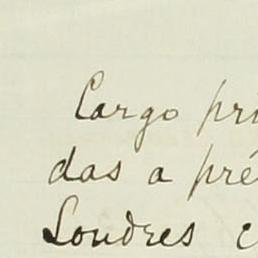 Cargo pri
das a pré
Londres c